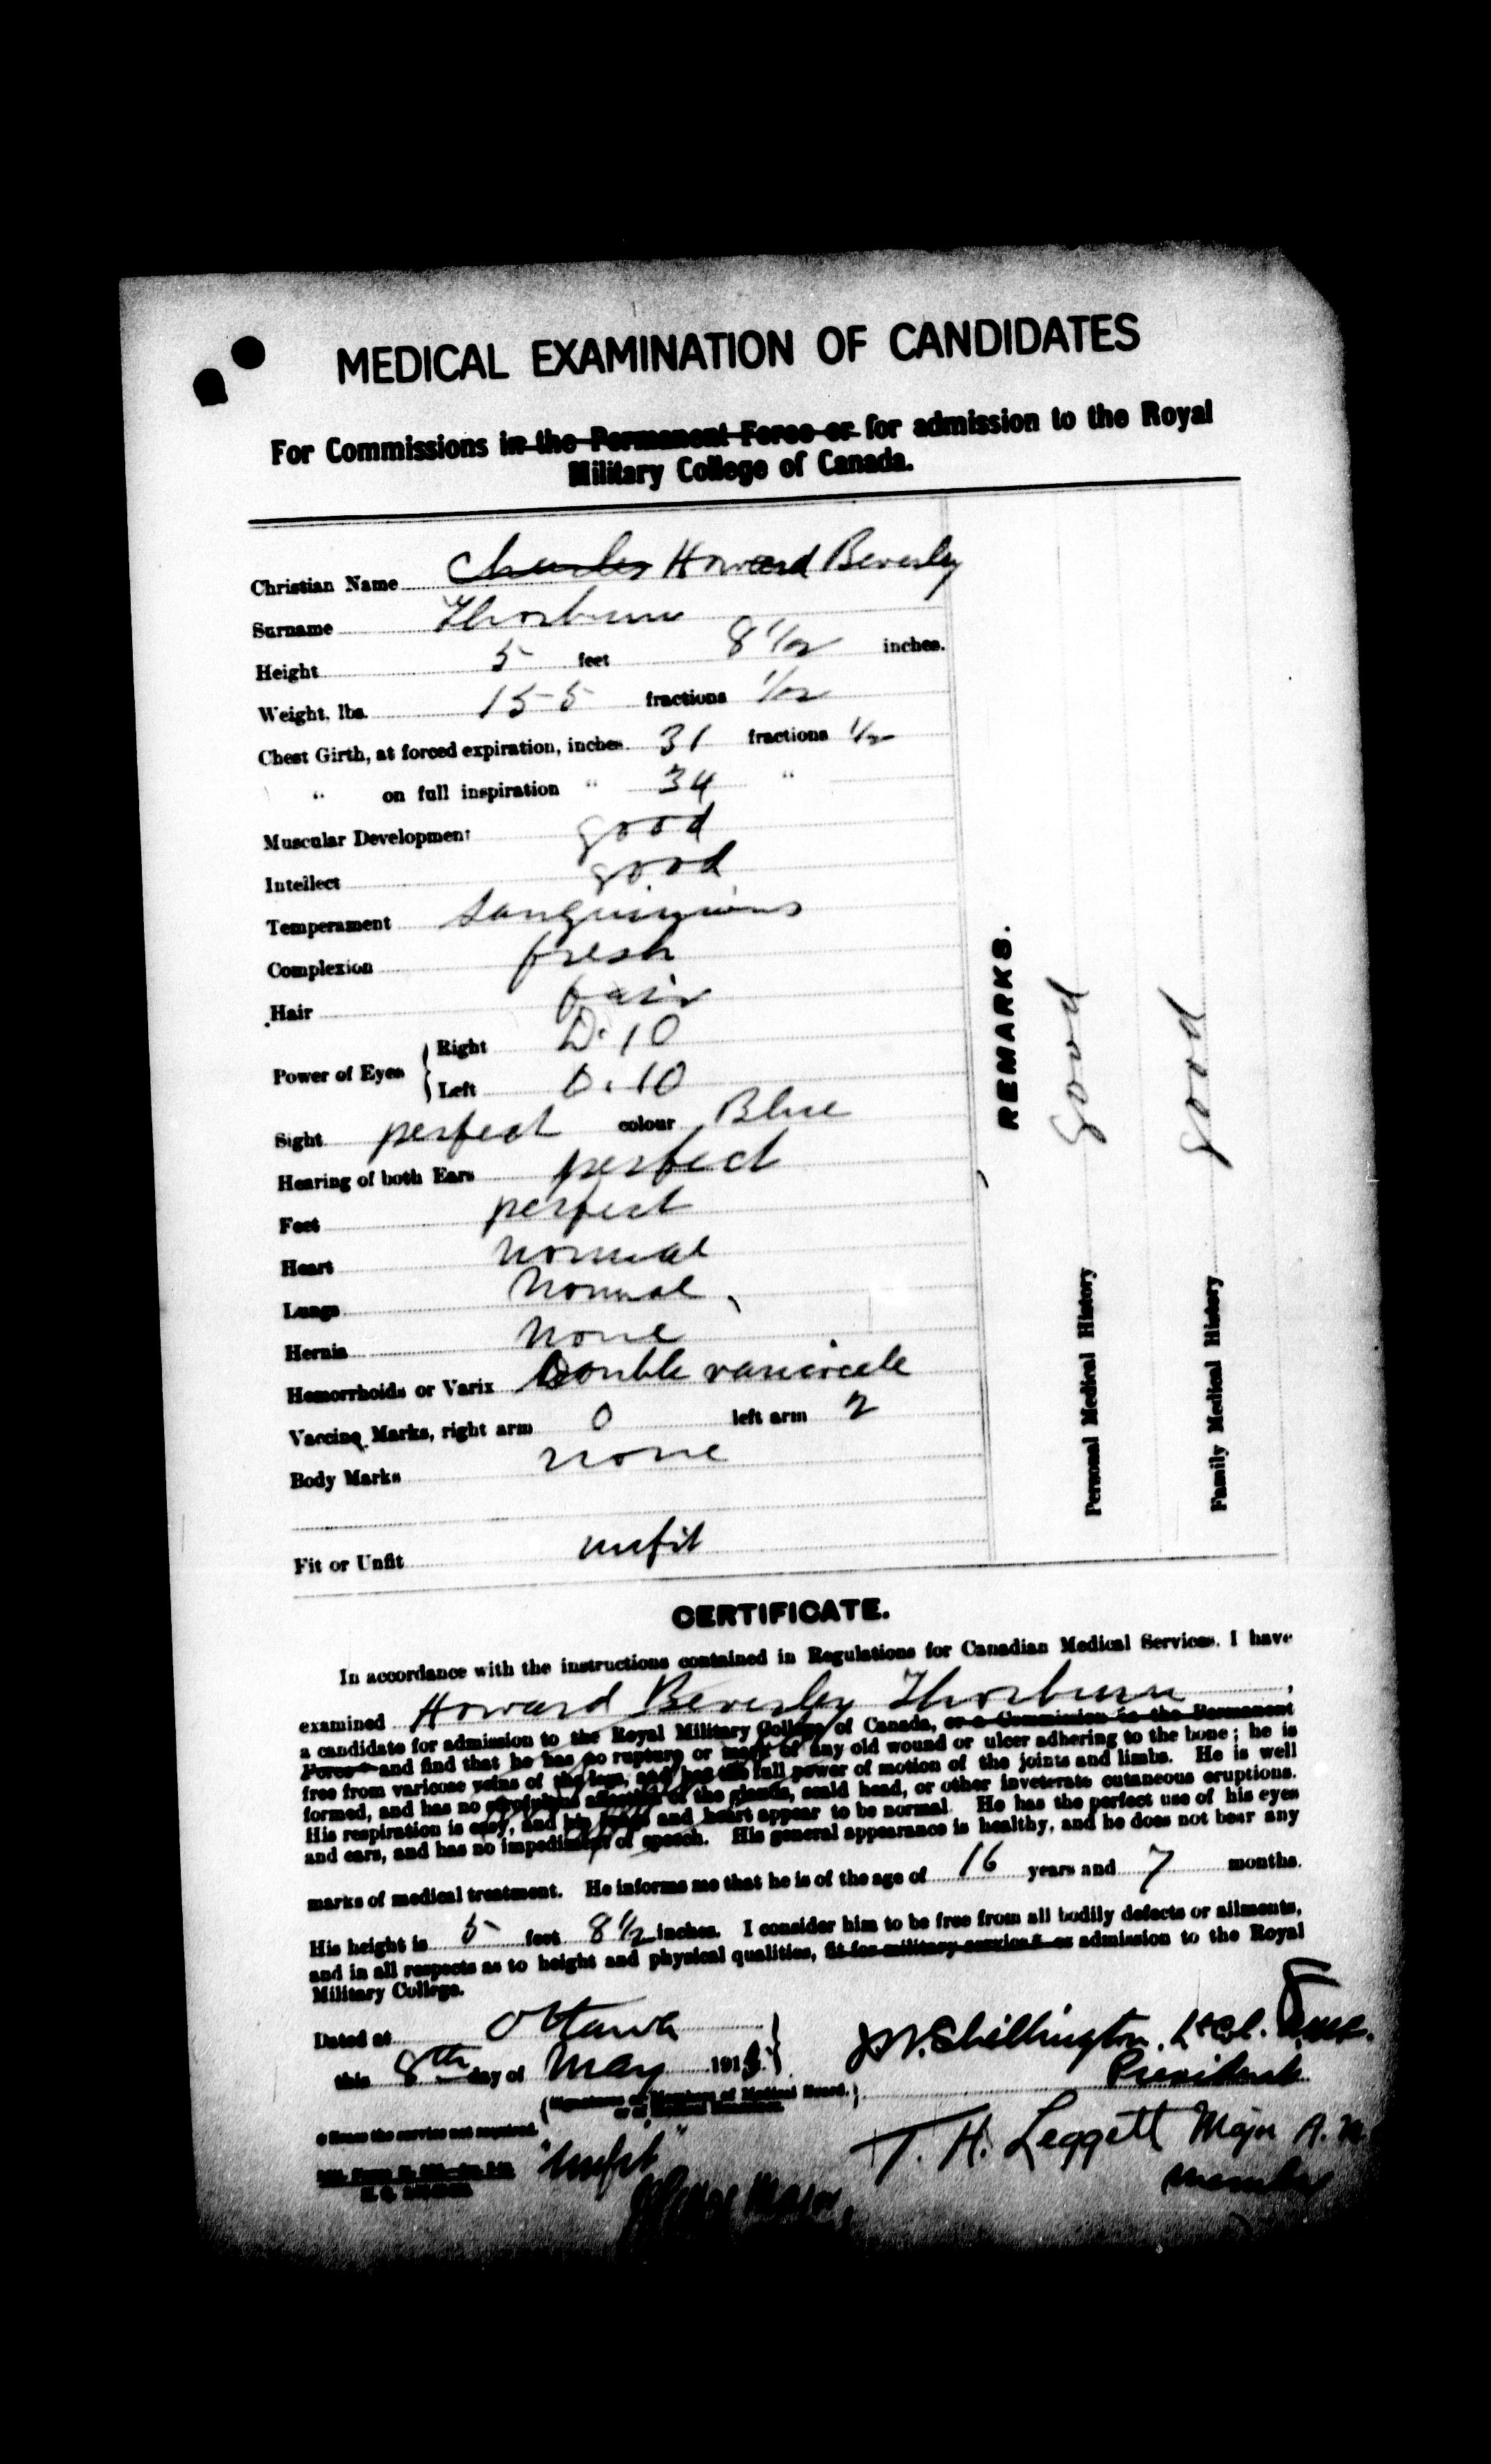 MEDICAL EXAMINATION OF CANDIDATES
For Commissions in the Permanent Force or for admission to the Royal
Military College of Canada.
Christian Name Charles Howard Beverley
Surname Thorburn
Height 5 feet 8 1/2 inches.
Weight, lbs. 155 fractions 1/2
Chest Girth, at forced expiration, inches 31 fractions 1/2
" on full inspiration " 34 "
Muscular Development good
Intellect good
Temperament
Complexion fresh
Hair fair
Power of Eyes { Right D. 10
Left D. 10
Sight perfect colour Blue
Hearing of both Ears perfect
Feet perfect
Heart normal
Lungs normal
Hernia none
Hemorrhoids or Varix Double varicocele
Vaccine Marks, right arm 0 left arm 2
Body Marks none
Fit or Unfit unfit
REMARKS.
Personal Medical History good
Family Medical History good
CERTIFICATE.
In accordance with the instructions contained in Regulations for Canadian Medical Services, I have
examined Howard Beverley Thorburn,
a candidate for admission to the Royal Military College of Canada, or a Commission in the Permanent
Force* and find that he has no rupture or mark of any old wound or ulcer adhering to the bone; he is
free from varicose veins of the legs, and has the full power of motion of the joints and limbs. He is well
formed, and has no scrofulous affection of the glands, scald head, or other inveterate cutaneous eruptions.
His respiration is easy, and his lungs and heart appear to be normal. He has the perfect use of his eyes
and ears, and has no impediment of speech. His general appearance is healthy, and he does not bear any
marks of medical treatment. He informs me that he is of the age of 16 years and 7 months.
His height is 5 feet 8 1/2 inches. I consider him to be free from all bodily defects or ailments,
and in all respects as to height and physical qualities, fit for military service* or admission to the Royal
Military College.
Dated at Ottawa
this 8th day of May 191
J.W. Shillington. Lt Col. A.M.C.
President
(Signatures of Members of Medical Board,)
* Erase the service not required.
"Unfit"
T. H. Leggett Major A. M.
Member
Major,